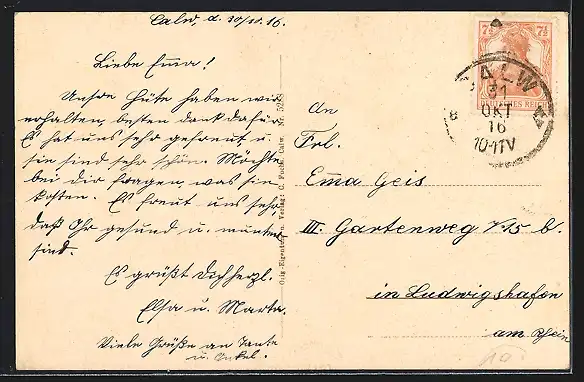 Calw, d. 30/10.16.
Liebe Emma!
Unsre Hüte haben wir
erhalten, besten Dank dafür.
Es hat uns sehr gefreut, u.
sie sind sehr schön. Möchte
bei dir fragen, was sie
kosten. Es freut uns sehr,
daß Ihr gesund u. munter
sind.
Es grüßt Dich herzl.
Elsa u. Marta.
Viele Grüße an Tante
u. Onkel.
Orig.-Eigentum u. Verlag: C. Fuchs, Calw. Nr. 5288
7½ 7½
DEUTSCHES REICH
CALW
31
OKT
16
10-11V
An
Frl.
Emma Geis
III. Gartenweg Nr 15 b.
in Ludwigshafen
am Rhein